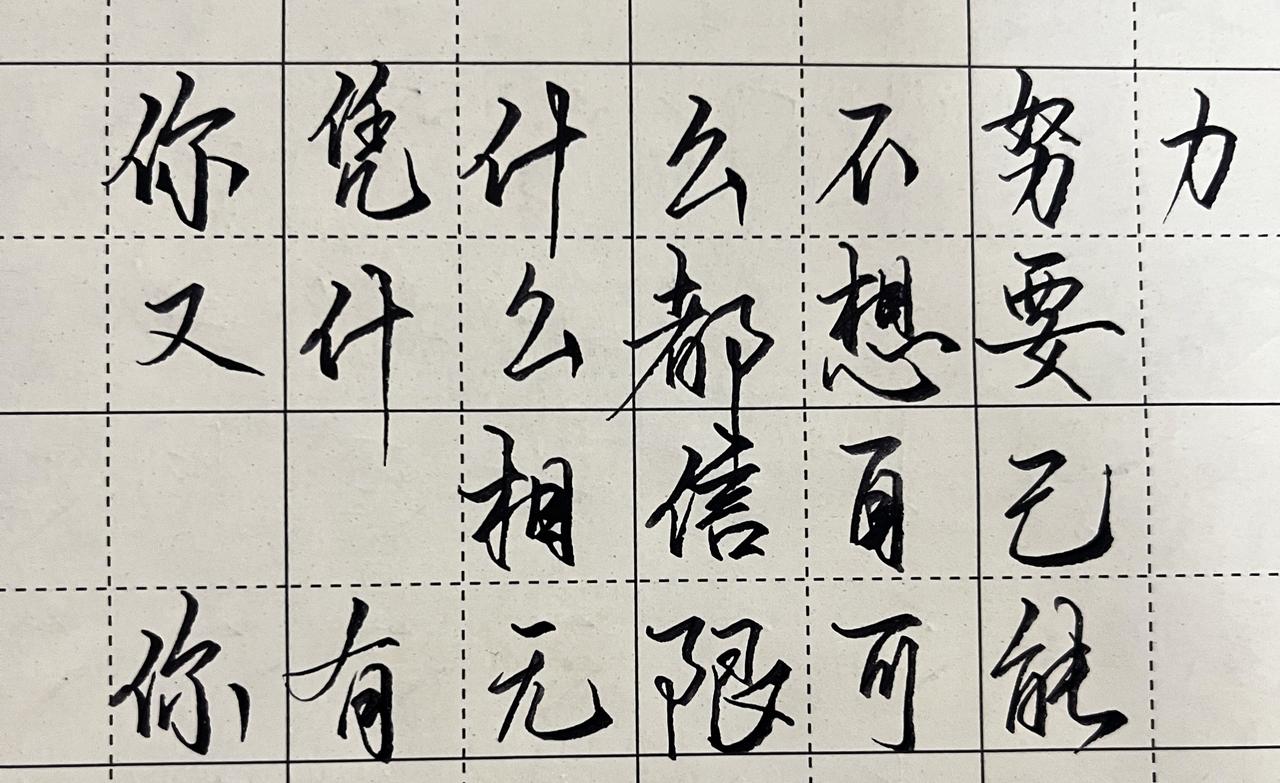 你凭什么不努力
又什么都想要
相信自己
你有无限可能